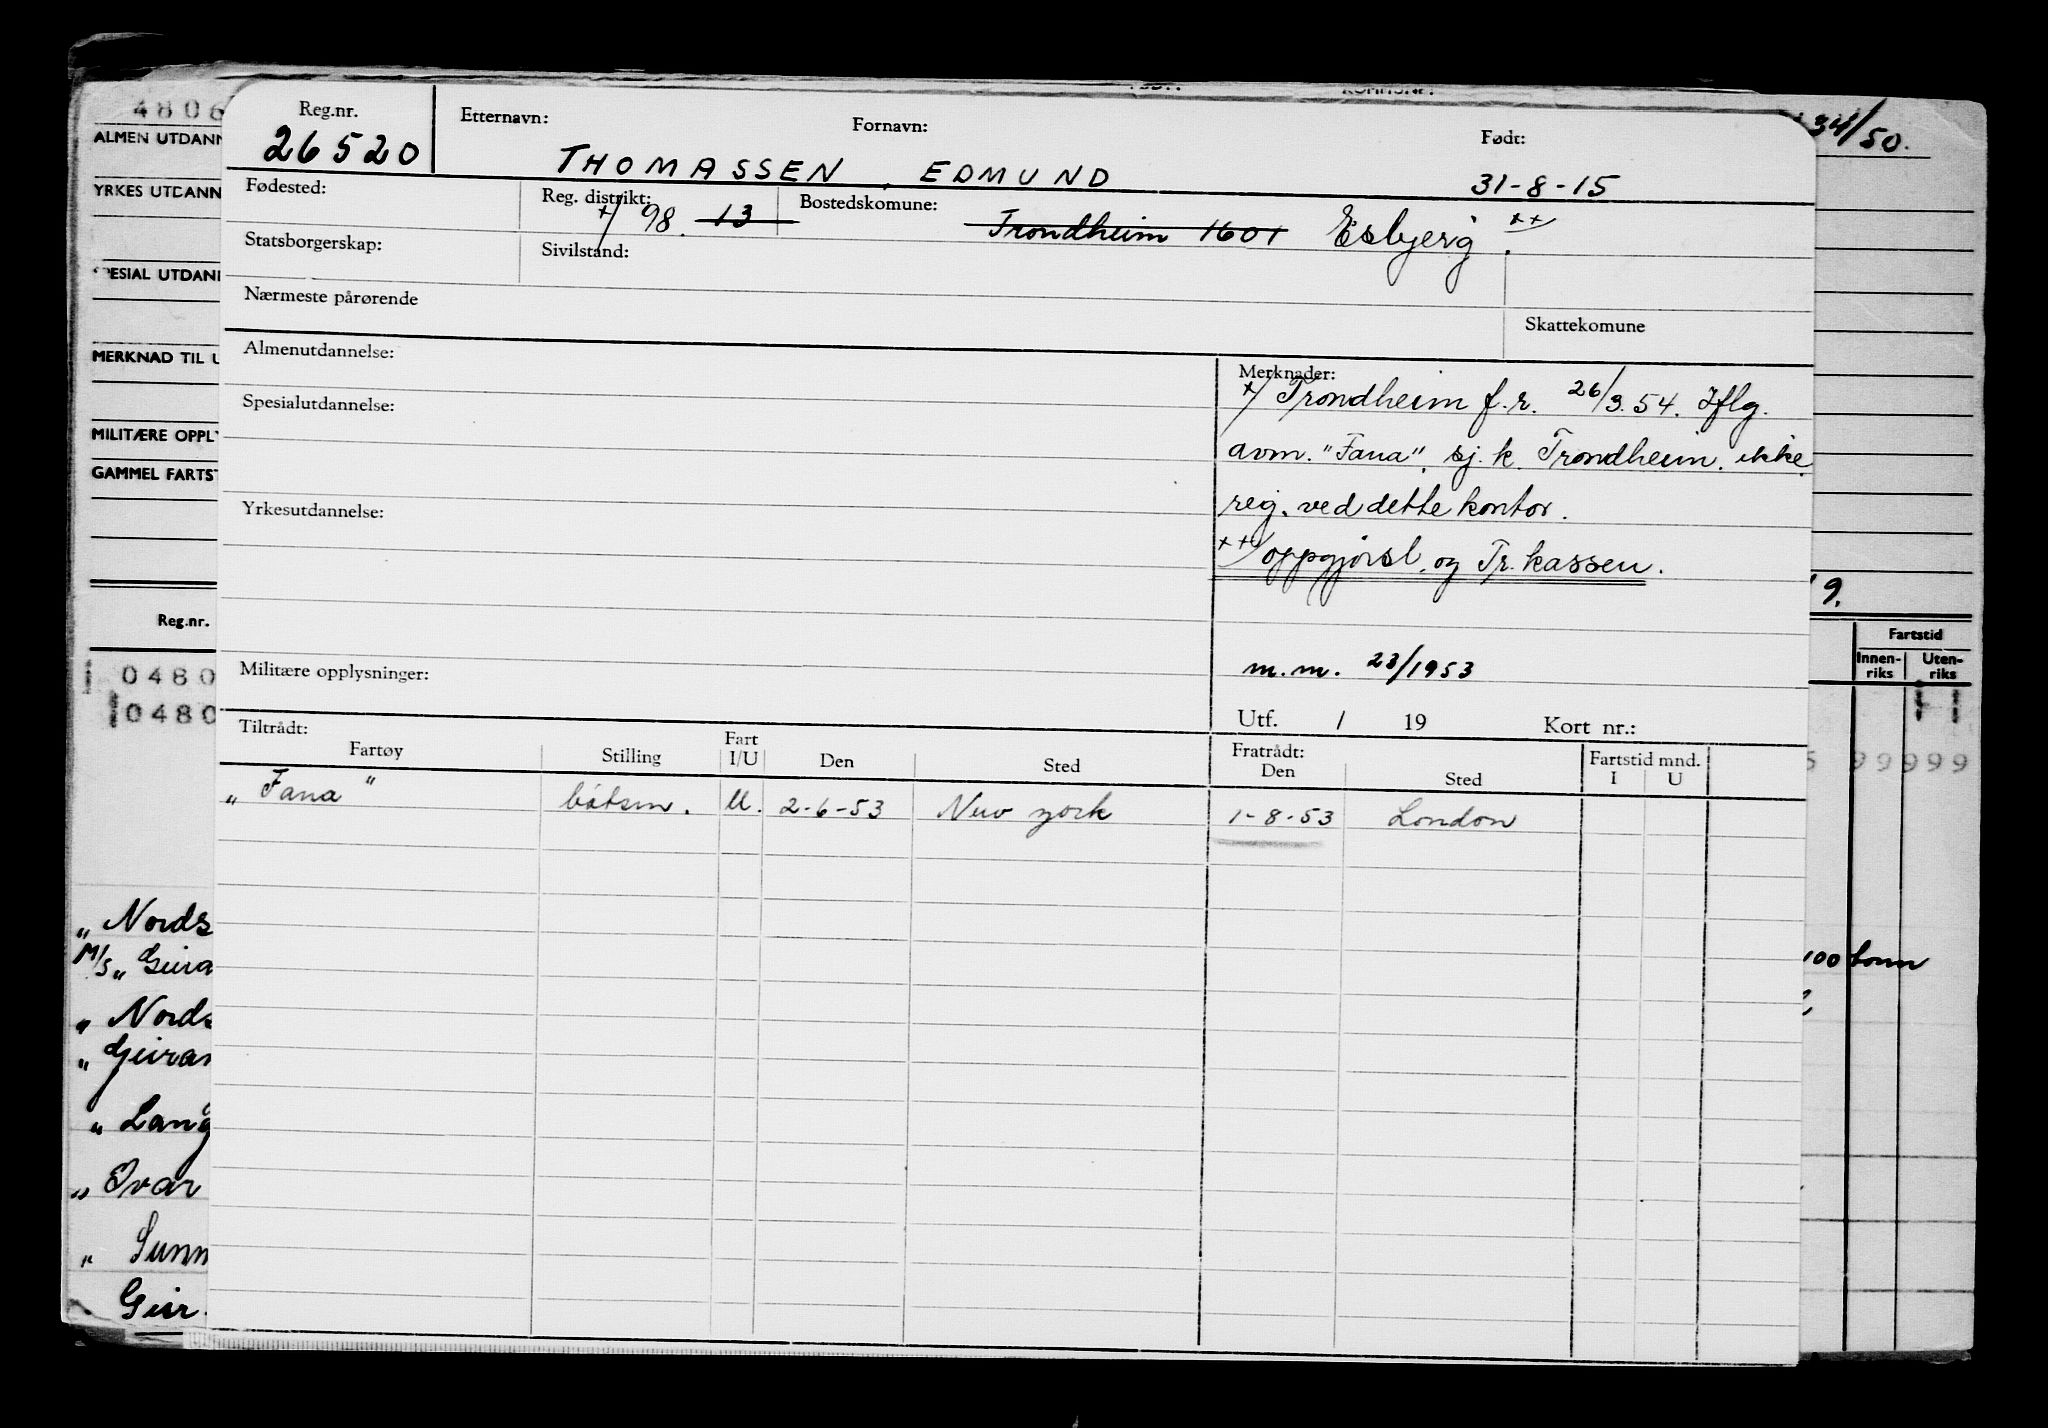 4806
ALMEN UTDANN
YRKES UTDANN
ESIAL UTDANI
MERKNAD TIL U
MILITÆRE OPPLY
GAMMEL FARTST
Reg.nr.
0480
0480
„ Nords
M/S „ Geira
„ Nords
„ Geiran
„ Lang
„ Ivar
„ Sunn
Geir
Reg.nr. Etternavn: Fornavn: Født:
26520 THOMASSEN, EDMUND 31-8-15
Fødested: Reg. distrikt: Bostedskomune:
+/ 98. 13 Trondheim 1601 Esbjerg ++/.
Statsborgerskap: Sivilstand:
Nærmeste pårørende
Skattekomune
Almenutdannelse:
Spesialutdannelse:
Yrkesutdannelse:
Militære opplysninger:
Merknader:
+/ Trondheim f.r. 26/3.54. Iflg.
avm. "Fana", sj.k. Trondheim. ikke
reg. ved dette kontor.
++/ oppgjørsl. og Tr.kassen.
m.m. 23/1953
Utf. / 19 Kort nr.:
Tiltrådt: Fratrådt:
Fartøy Stilling Fart I/U Den Sted Den Sted Fartstid mnd. I U
„Fana" båtsm. U. 2-6-53 New york 1-8-53 London
34/50.
9.
Fartstid
Innen-
riks
Uten-
riks
99999
100 tonn